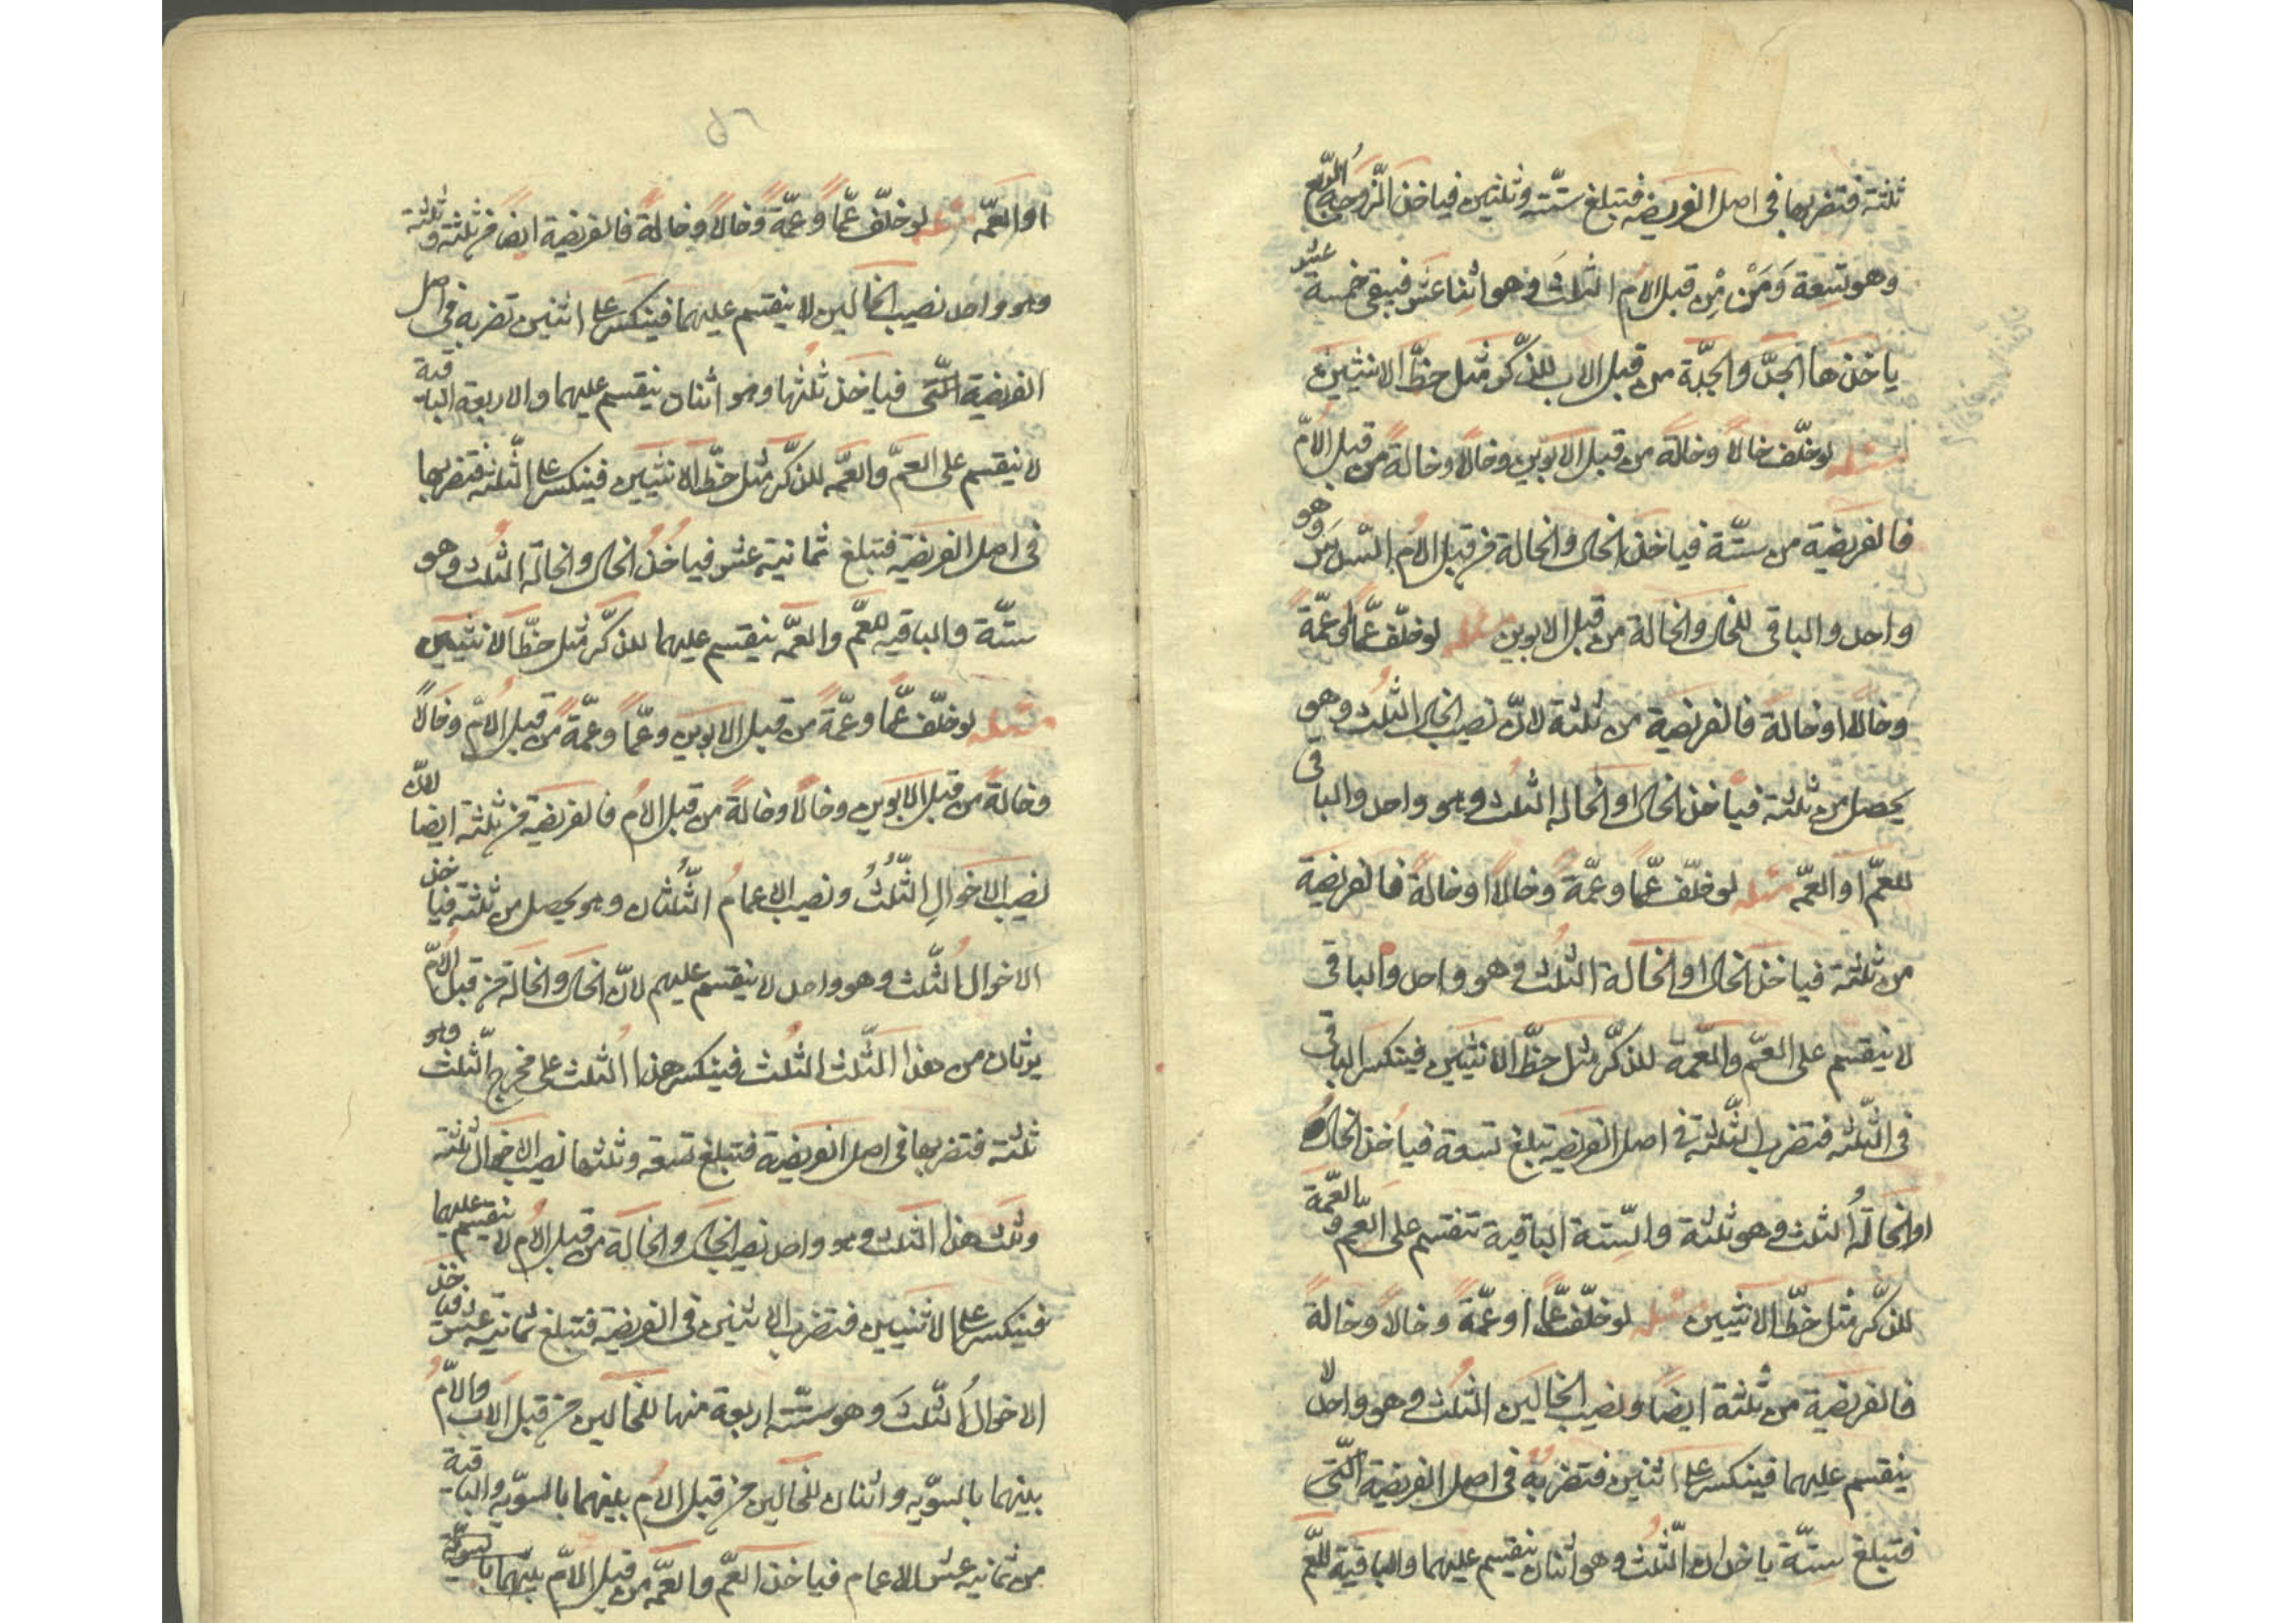 ثلثة فتضربها فى اصل الفريضه فتبلغ ستّة وثلثين فياخذ الزّوجة الرّبع
وهو تسعة وَمَنْ مِنْ قبل الامّ الثلث وهو اثنا عشر فيبقى خمسة عشر
ياخذها الجدّ والجدّة من قبل الاب للذّكر مثل حظّ الانثيين
مسئله لو خلّف خالاً وخالة من قبل الابوين وخالاً وخالة من قبل الامّ
فالفريضة من ستّة فياخذ الخال والخالة من قبل الامّ السّدس وهو
واحد والباقى للخال والخالة من قبل الابوين مسئله لو خلّف عمّاً او عمّة
وخالاً او خالة فالفريضة من ثلثة لانّ نصيب الخال الثلث وهو
يحصل من ثلثة فياخذ الخال او الخاله الثلث وهو واحد والباقى
للعمّ او العمّه مسئله لو خلّف عمّاً وعمّة وخالاً او خالة فالفريضة
من ثلثة فياخذ الخال او الخالة الثلث وهو واحد والباقى
لا ينقسم على العمّ والعمّة للذكّر مثل حظّ الانثيين فينكسر الباقى
فى الثّلثه فتضرب الثّلثة فى اصل الفريضة تبلغ تسعة فياخذ الخال
او الخالةُ الثلث وهو ثلثة والسّتة الباقية تنقسم على العّم والعمّة
للذكّر مثل حظّ الانثيين مسئله لو خلّف عمّاً او عمّةً وخالاً وخالةً
فالفريضة من ثلثة ايضاً ونصيب الخالين الثلث وهو واحد لا
ينقسم عليهما فينكسر على اثنين فتضربهُ فى اصل الفريضة الّتى
فتبلغ ستّة ياخذان الثّلث وهو اثنان ينقسم عليهما والباقية للعّم
٥٦
او العمّه مسئله لو خلّف عمّاً وعمّةً وخالاً وخالةً فالفريضة ايضا من ثلثة وثلثه
وهو واحد نصيب الخالين لا ينقسم عليهما فينكسر على اثنين تضربه فى اصل
الفريضة الّتى فياخذ ثلثها وهو اثنان ينقسم عليهما والاربعة الباقية
لا ينقسم على العمّ والعمّه للذكّر مثل حظّ الانثيين فينكسر على الثّلثة فتضربها
فى اصل الفريضة فتبلغ ثمانية عشر فياخذُ الخال والخالة الثلث وهو
ستّة والباقيه للعّم والعمّه ينقسم عليهما للذكّر مثل حظّ الانثيين
مسئله لو خلّف عمّاً وعمّةً من قبل الابوين وعمّاً وعمّةً من قبل الامّ وخالاً
وخالةً من قبل الابوين وخالاً وخالةً من قبل الامّ فالفريضة من ثلثة ايضا لانّ
نصيب الاخوالِ الثّلثُ ونصيب الاعمامُ الثّلثان وهو يحصل من ثلثه فياخذ
الاخوالُ الثّلث وهو واحد لا ينقسم عليهم لانّ الخال والخالة من قبل الامّ
يرثان من هذا الثّلث الثلث فينكسر هذا الثلث على مخرج الثّلث وهو
ثلثة فتضربها فى اصل الفريضة فتبلغ تسعة وثلثها نصيب الاخوال ثلثة
وثلث هذا الثلث وهو واحد نصيب الخال والخالة من قبل الامّ لا ينقسم عليهما
فينكسر على الاثنيين فتضرب الاثنين فى الفريضة فتبلغ ثمانية عشر فياخذ
الاخوالُ الثّلثَ وهو ستّة اربعة منها للخالين من قبل الاب والامّ
بينهما بالسّويه واثنان للخالين من قبل الامّ بينهما بالسّويه والباقية
من ثمانية عشر للاعمام فياخذ العمّ والعمّه من قبل الامّ بينهما بالسويّة